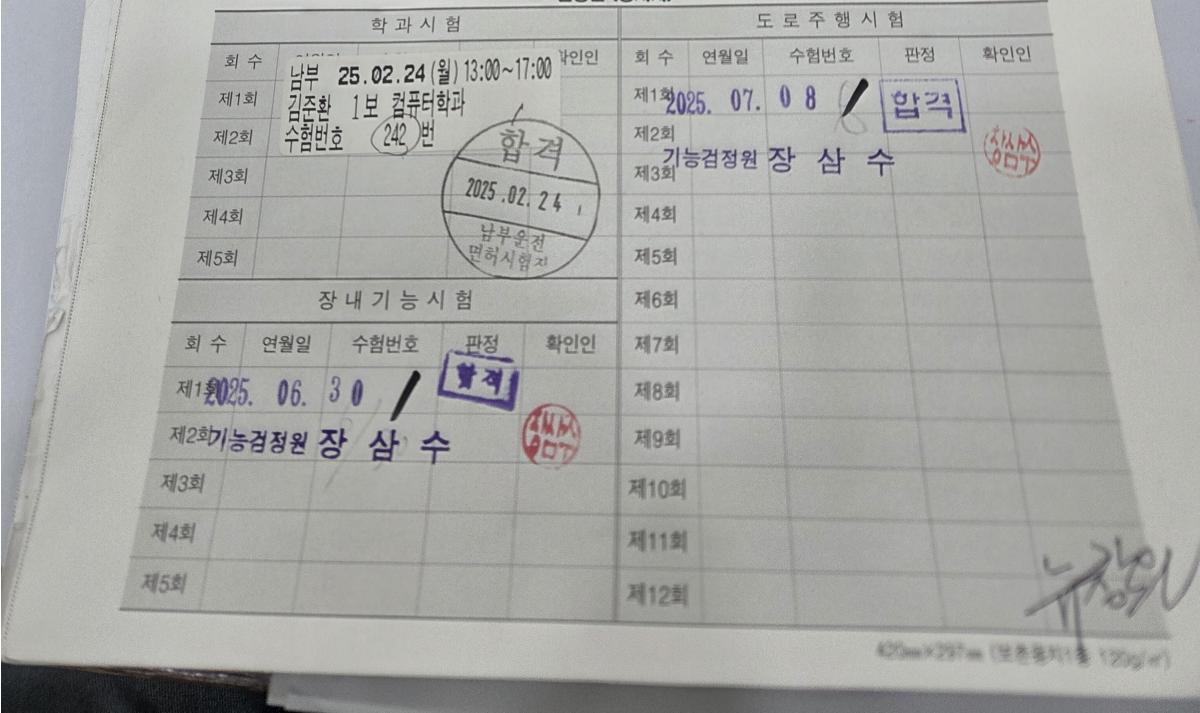 학과시험
회 수
확인인
남부 25.02.24(월)13:00~17:00
김준환 1보 컴퓨터학과
수험번호 242번
제1회
제2회
제3회
제4회
제5회
합격
2025.02.24
남부운전
면허시험장
장내기능시험
회 수 연월일 수험번호 판정 확인인
제1회 2025. 06. 30 합격
제2회 기능검정원 장삼수
제3회
제4회
제5회
도로주행시험
회 수 연월일 수험번호 판정 확인인
제1회 2025. 07. 08 합격
제2회
제3회 기능검정원 장삼수
제4회
제5회
제6회
제7회
제8회
제9회
제10회
제11회
제12회
420㎜×297㎜ (보존용지1종 120g/㎡)